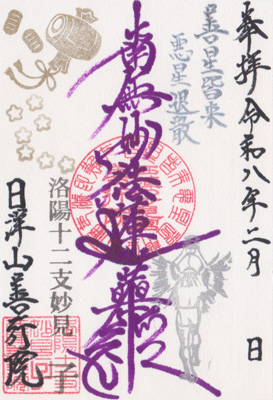 奉拝 令和八年二月 日
善星皆来
悪星退散
南無妙法蓮華経
洛陽十二支妙見 子
日洋山善行院